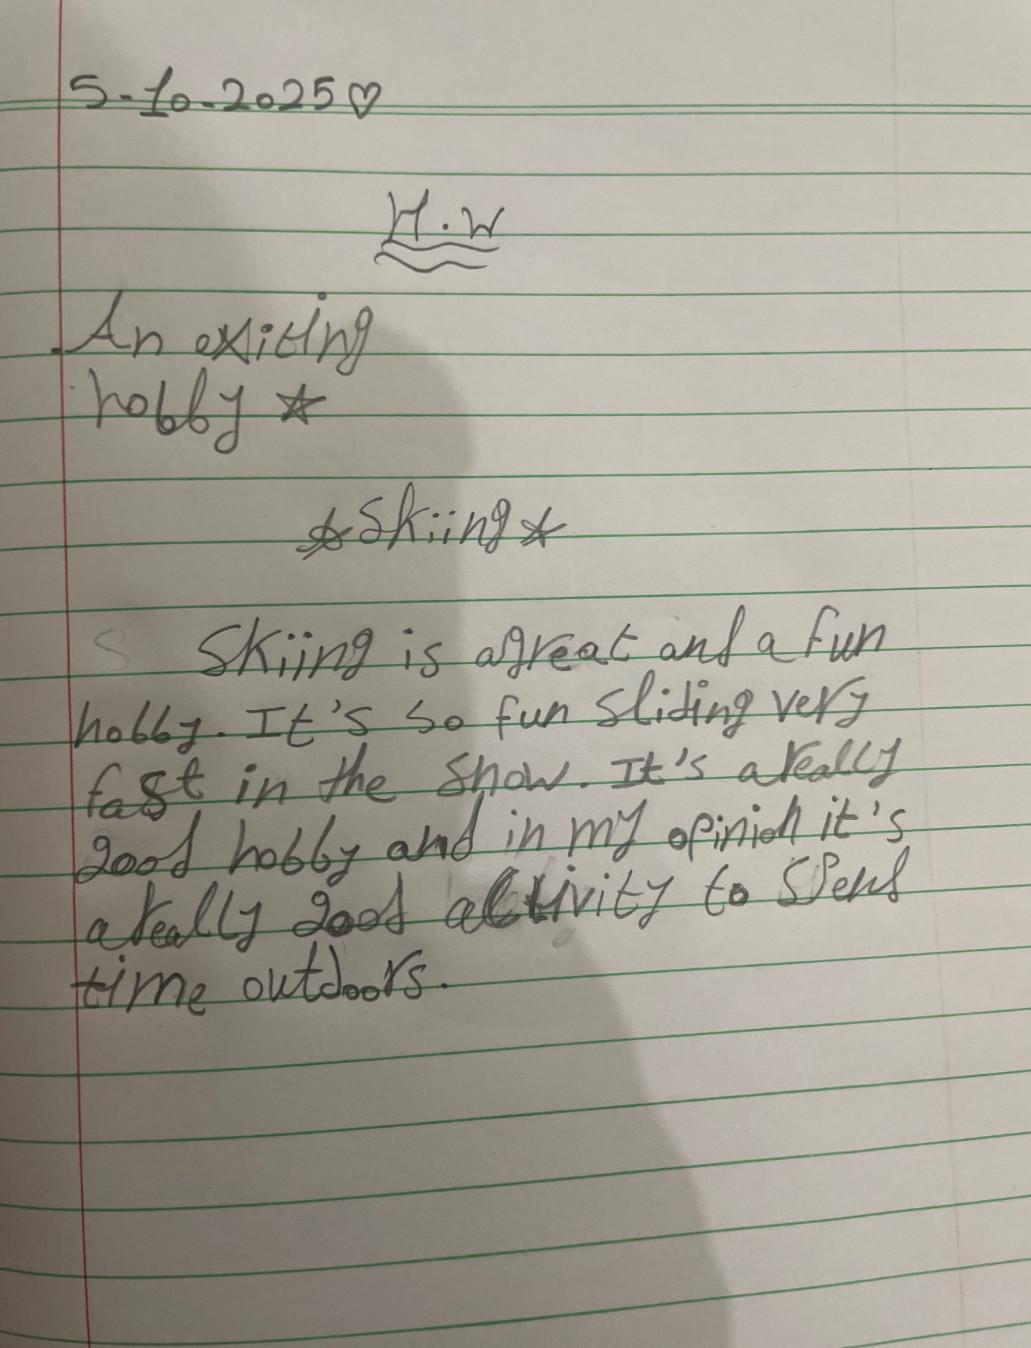 5-10-2025♡
H.W
An exiting
hobby ☆
☆Skiing☆
Skiing is a great and a fun
hobby. It's so fun sliding very
fast in the snow. It's a really
good hobby and in my opinion it's
a really good activity to spend
time outdoors.